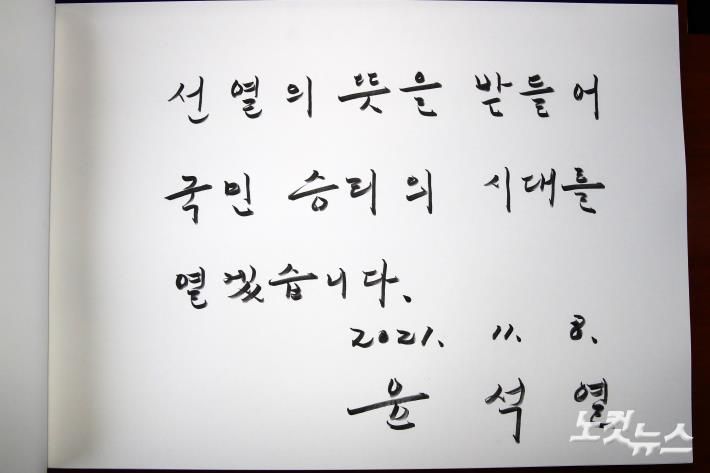 선열의 뜻을 받들어
국민 승리의 시대를
열겠습니다.
2021. 11. 8.
윤 석 열
노컷뉴스